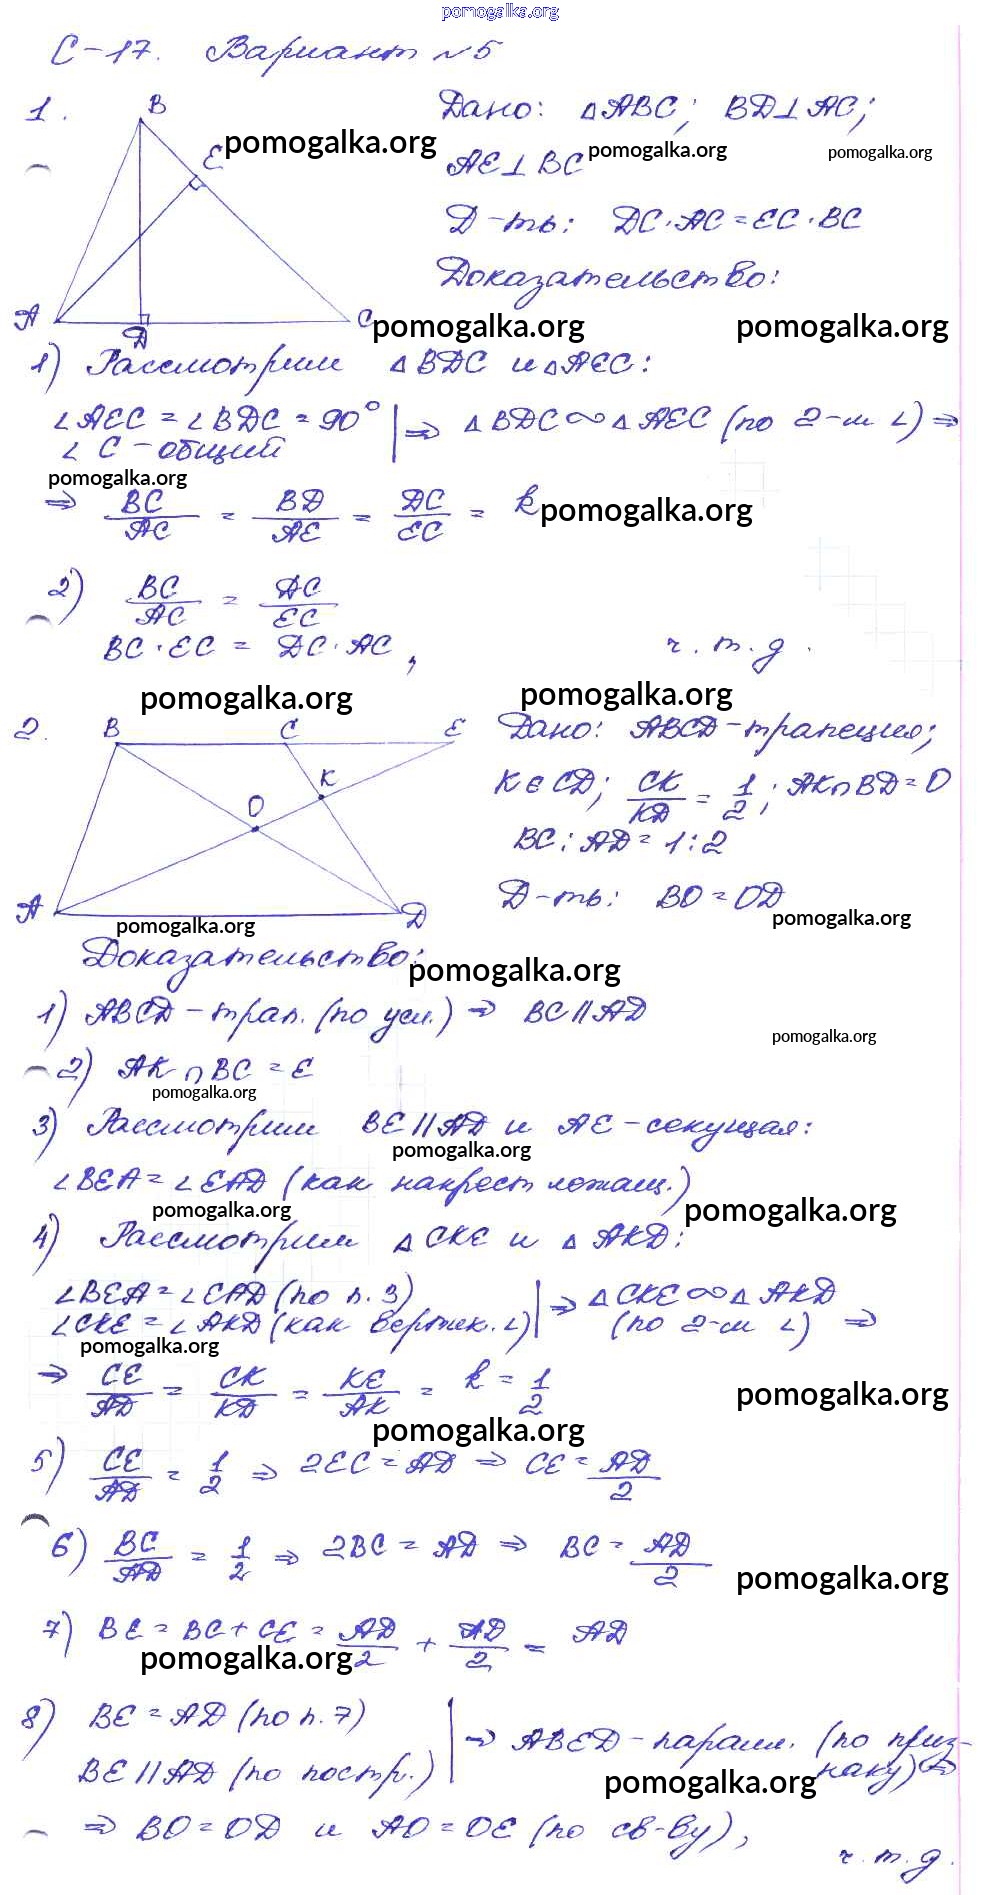 pomogalka.org
С-17. Вариант №5
1.
B
E
A
D
C
pomogalka.org
Дано: △ABC; BD⊥AC;
pomogalka.org
pomogalka.org
AE⊥BC
Д-ть: DC·AC=EC·BC
Доказательство:
pomogalka.org
pomogalka.org
1) Рассмотрим △BDC и △AEC:
∠AEC = ∠BDC = 90° | ⇒ △BDC ∽ △AEC (по 2-м ∠) ⇒
∠C - общий
pomogalka.org
⇒ BC/AC = BD/AE = DC/EC = k
pomogalka.org
2) BC/AC = DC/EC
BC·EC = DC·AC, ч.т.д.
pomogalka.org
pomogalka.org
2.
B
C
E
K
O
A
D
Дано: ABCD-трапеция;
K∈CD; CK/KD = 1/2; AK∩BD=O
BC:AD=1:2
Д-ть: BO=OD
pomogalka.org
pomogalka.org
Доказательство:
pomogalka.org
1) ABCD-трап. (по усл.) ⇒ BC||AD
pomogalka.org
2) AK∩BC=E
pomogalka.org
3) Рассмотрим BE||AD и AE-секущая:
pomogalka.org
∠BEA=∠EAD (как накрест лежащ.)
pomogalka.org
pomogalka.org
4) Рассмотрим △CKE и △AKD:
∠BEA=∠EAD (по п.3) | ⇒ △CKE∽△AKD
∠CKE=∠AKD (как вертик.∠) (по 2-м ∠) ⇒
pomogalka.org
⇒ CE/AD = CK/KD = KE/AK = k = 1/2
pomogalka.org
pomogalka.org
5) CE/AD = 1/2 ⇒ 2EC=AD ⇒ CE=AD/2
6) BC/AD = 1/2 ⇒ 2BC=AD ⇒ BC=AD/2
pomogalka.org
7) BE=BC+CE=AD/2 + AD/2 = AD
pomogalka.org
8) BE=AD (по п.7) | ⇒ ABED-паралл. (по приз-
BE||AD (по постр.) наку) ⇒
pomogalka.org
⇒ BO=OD и AO=OE (по св-ву),
ч.т.д.